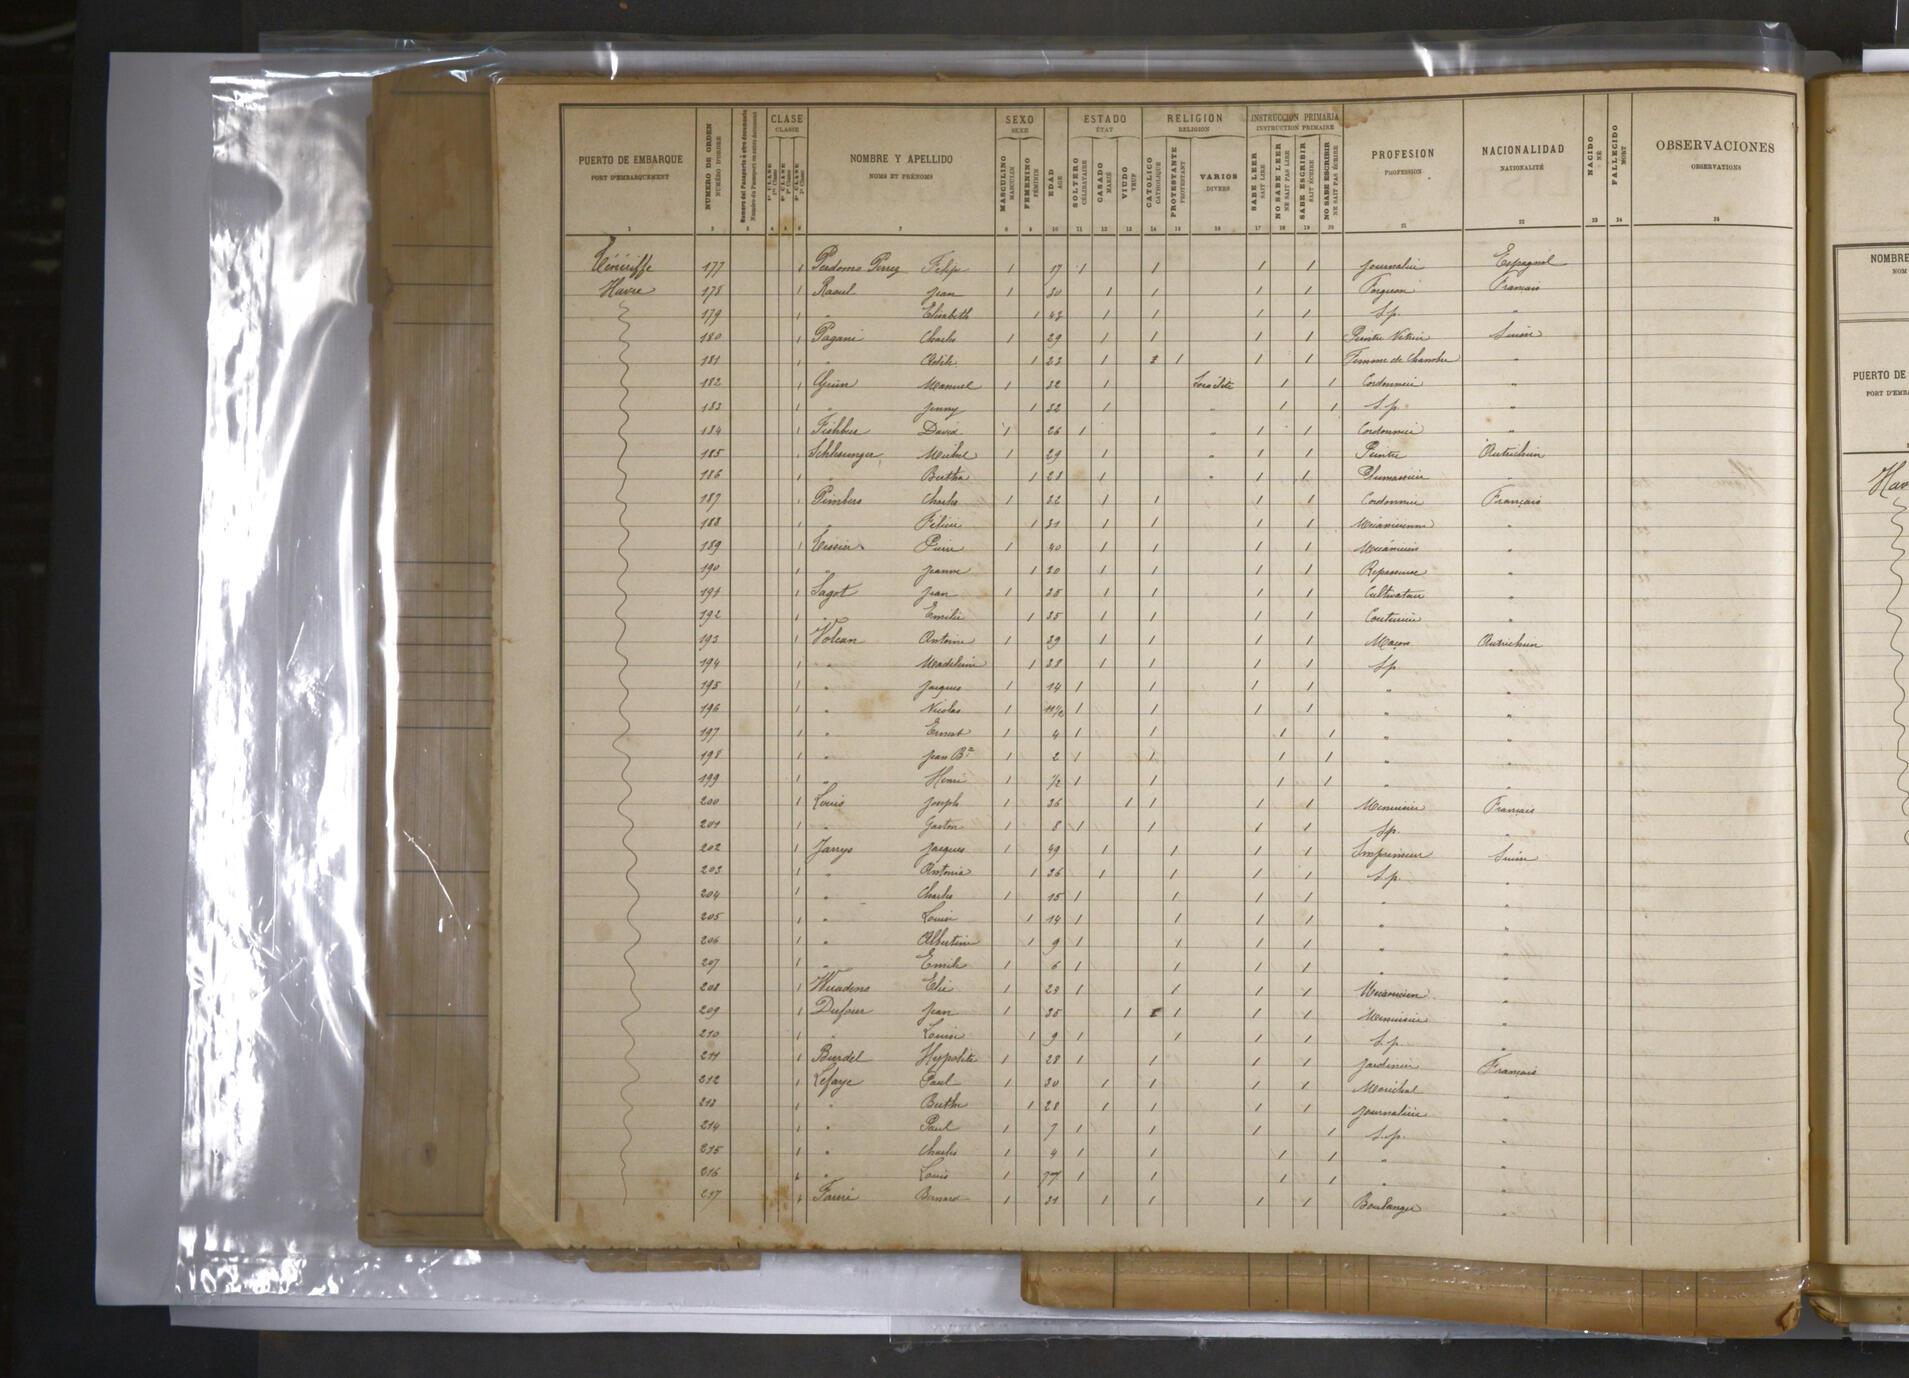 PUERTO DE EMBARQUE PORT D'EMBARQUEMENT
NUMERO DE ORDEN NUMÉRO D'ORDRE
CLASE CLASSE 1ª CLASE 2ª CLASE 3ª CLASE
NOMBRE Y APELLIDO NOMS ET PRÉNOMS
SEXO SEXE MASCULINO MASCULIN FEMENINO FÉMININ
EDAD AGE
ESTADO ÉTAT SOLTERO CÉLIBATAIRE CASADO MARIÉ VIUDO VEUF
RELIGION RELIGION CATOLICO CATHOLIQUE PROTESTANTE PROTESTANT VARIOS DIVERS
INSTRUCCION PRIMARIA INSTRUCTION PRIMAIRE SABE LEER SAIT LIRE NO SABE LEER NE SAIT PAS LIRE SABE ESCRIBIR SAIT ÉCRIRE NO SABE ESCRIBIR NE SAIT PAS ÉCRIRE
PROFESION PROFESSION
NACIONALIDAD NATIONALITÉ
NACIDO NÉ
FALLECIDO MORT
OBSERVACIONES OBSERVATIONS
Ténériffe 177 1 Perdomo Perez Felip 1 17 1 1 1 1 Journalier Espagnol
Havre 178 1 Raoul Jean 1 30 1 1 1 1 Forgeron Français
179 1 " Elisabeth 1 43 1 1 1 1 S.p. "
180 1 Pagani Charles 1 29 1 1 1 1 Peintre Vitrier Suisse
181 1 " Adèle 1 23 1 1 1 1 Femme de Chambre "
182 1 Grün Manuel 1 32 1 Israélite 1 1 Cordonnier "
183 1 " Jenny 1 32 1 " 1 1 S.p. "
184 1 David 1 26 1 " 1 1 Cordonnier "
185 1 29 1 " 1 1 Peintre Autrichien
186 1 " Bertha 1 28 1 " 1 1 Plumassière "
187 1 Charles 1 32 1 1 1 1 Cordonnier Français
188 1 " Félicie 1 31 1 1 1 1 Mécanicienne "
189 1 Tissier Pierre 1 40 1 1 1 1 Mécanicien "
190 1 " Jeanne 1 30 1 1 1 1 Repasseuse "
191 1 Sagot Jean 1 38 1 1 1 1 Cultivateur "
192 1 " Emilie 1 35 1 1 1 1 Couturière "
193 1 Volcan Antoine 1 39 1 1 1 1 Maçon Autrichien
194 1 " Madeleine 1 38 1 1 1 1 S.p. "
195 1 " Jacques 1 14 1 1 1 1 " "
196 1 " Nicolas 1 11½ 1 1 1 1 " "
197 1 " Ernest 1 4 1 1 1 1 " "
198 1 " Jean Bte 1 2 1 1 1 1 " "
199 1 " Henri 1 ½ 1 1 1 1 " "
200 1 Louis Joseph 1 36 1 1 1 1 Menuisier Français
201 1 " Gaston 1 8 1 1 1 1 S.p. "
202 1 Jarrys Jacques 1 49 1 1 1 1 Imprimeur Suisse
203 1 " Antonia 1 36 1 1 1 1 S.p. "
204 1 " Charles 1 15 1 1 1 1 " "
205 1 " Louise 1 14 1 1 1 1 " "
206 1 " Albertine 1 9 1 1 1 1 " "
207 1 " Emile 1 6 1 1 1 1 " "
208 1 Elie 1 23 1 1 1 1 Mécanicien "
209 1 Dufour Jean 1 35 1 1 1 1 Menuisier "
210 1 " Louise 1 9 1 1 1 1 S.p. "
211 1 Burdel Hypolite 1 28 1 1 1 1 Jardinier Français
212 1 Lefaye Paul 1 30 1 1 1 1 Maréchal "
213 1 " Berthe 1 28 1 1 1 1 Journalière "
214 1 " Paul 1 7 1 1 1 1 S.p. "
215 1 " Charles 1 4 1 1 1 1 " "
216 1 " Louis 1 1 1 1 1 " "
217 1 Faure Bernard 1 31 1 1 1 1 Boulanger "
NOMBRE
NOM
PUERTO DE
PORT D'EMBA
Hav